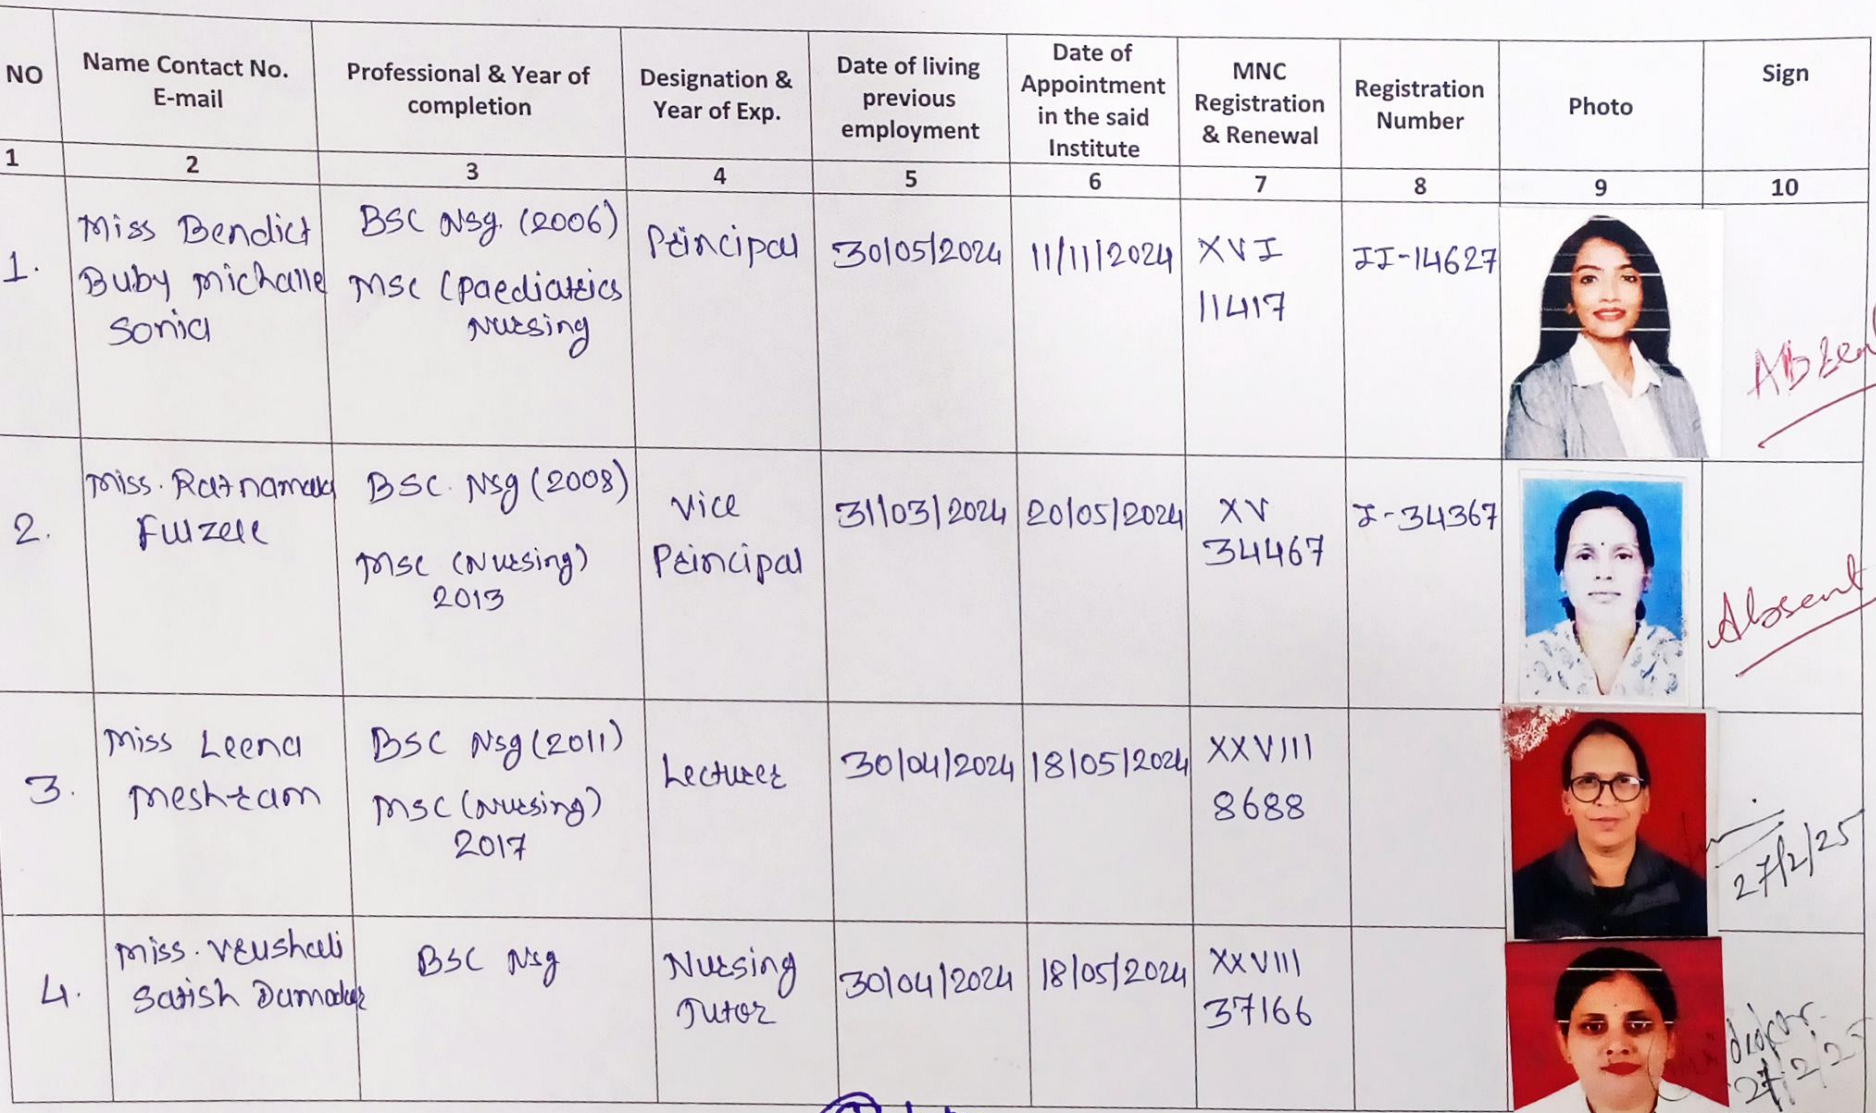 NO
Name Contact No.
E-mail
Professional & Year of
completion
Designation &
Year of Exp.
Date of living
previous
employment
Date of
Appointment
in the said
Institute
MNC
Registration
& Renewal
Registration
Number
Photo
Sign
1 2 3 4 5 6 7 8 9 10
1.
Miss Bendict
Buby Michalle
Sonia
BSC Nsg. (2006)
MSC (Paediatrics
Nursing
Principal
30/05/2024
11/11/2024
XVI
11417
II-14627
Absent
2.
Miss. Ratnamala
Fulzele
BSC. Nsg (2008)
MSC (Nursing)
2013
Vice
Principal
31/03/2024
20/05/2024
XV
34467
I-34367
Absent
3.
Miss Leena
Meshram
BSC Nsg (2011)
MSC (Nursing)
2017
Lecturer
30/04/2024
18/05/2024
XXVIII
8688
27/2/25
4.
Miss. Vrushali
Satish Damodar
BSC Nsg
Nursing
Tutor
30/04/2024
18/05/2024
XXVIII
37166
27/2/25